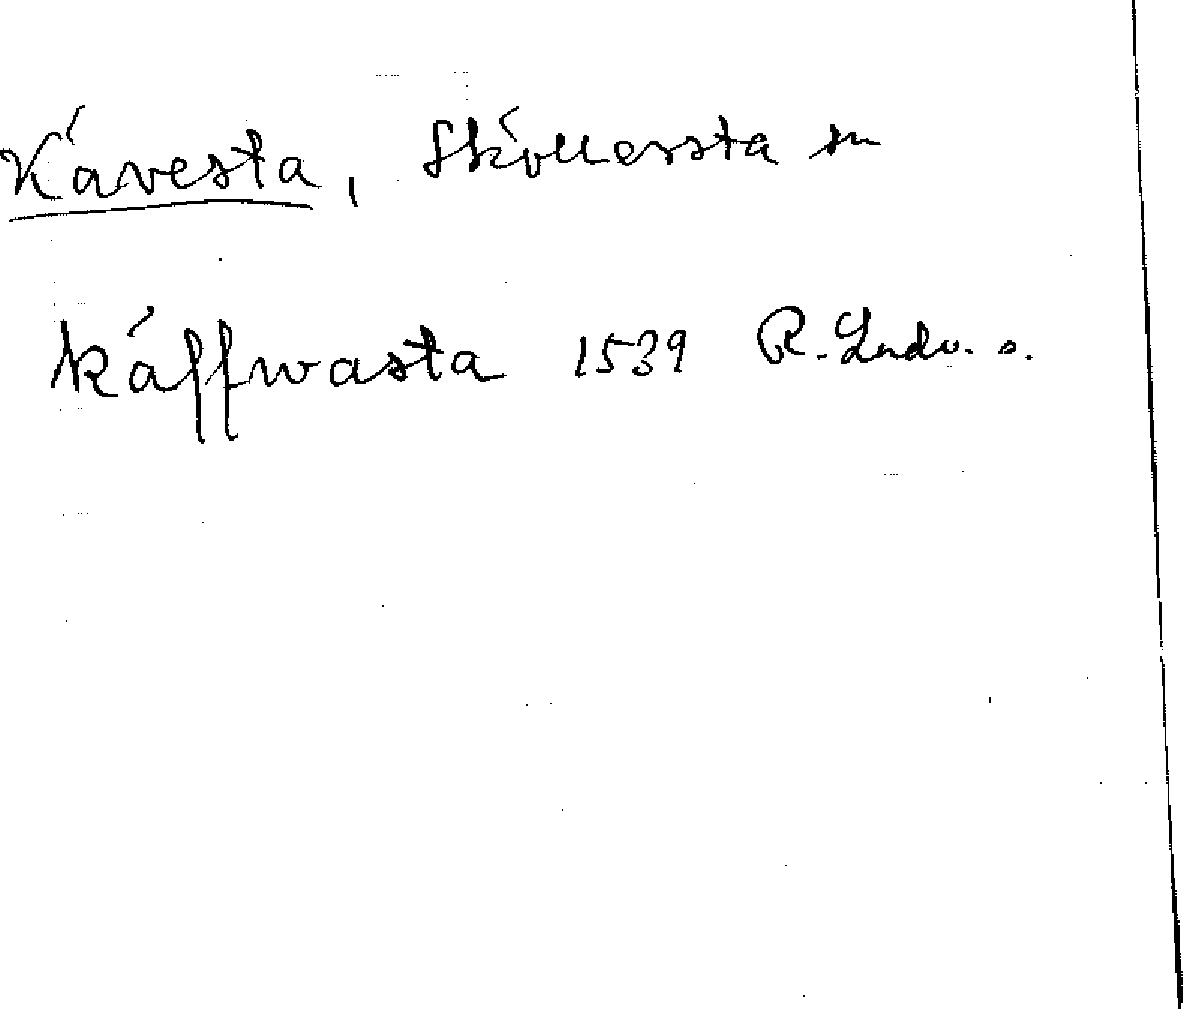 Kävesta, Sköllersta sn
Käffwasta 1539 R. Ludv. s.